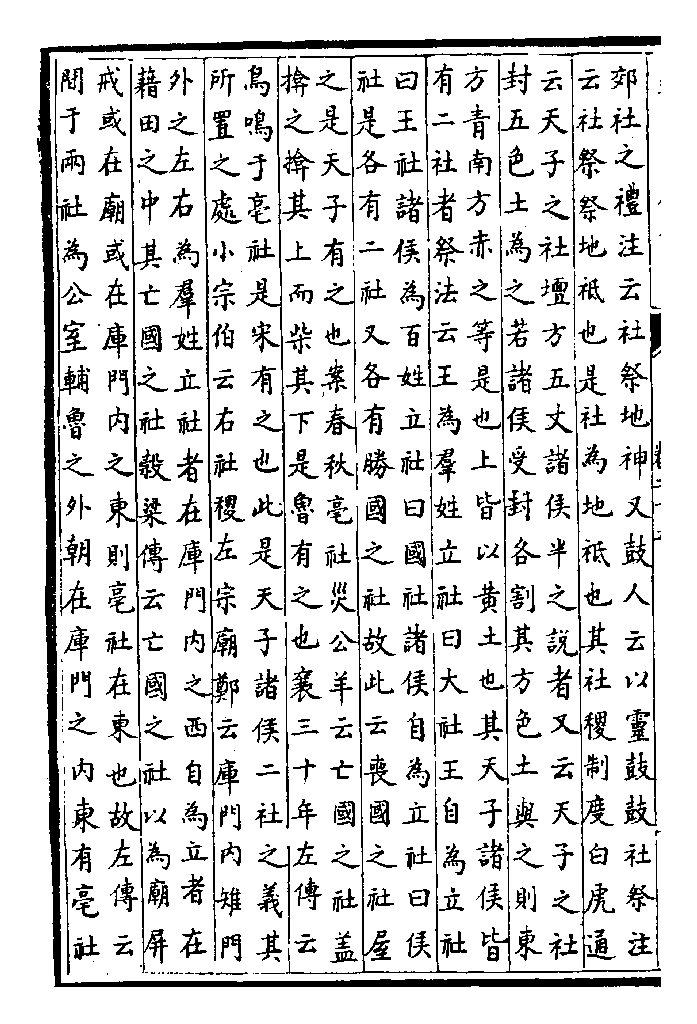 郊社之禮注云社祭地神又鼓人云以靈鼓鼓社祭注
云社祭祭地祗也是社為地祗也其社稷制度白虎通
云天子之社壇方五丈諸侯半之説者又云天子之社
封五色土為之若諸侯受封各割其方色土與之則東
方青南方赤之等是也上皆以黄土也其天子諸侯皆
有二社者祭法云王為羣姓立社曰大社王自為立社
曰王社諸侯為百姓立社曰國社諸侯自為立社曰侯
社是各有二社又各有勝國之社故此云喪國之社屋
之是天子有之也案春秋亳社災公羊云亡國之社盖
揜之揜其上而柴其下是魯有之也襄三十年左傳云
鳥鳴于亳社是宋有之也此是天子諸侯二社之義其
所置之處小宗伯云右社稷左宗廟鄭云庫門内雉門
外之左右為羣姓立社者在庫門内之西自為立者在
藉田之中其亡國之社穀梁傳云亡國之社以為廟屏
戒或在廟或在庫門内之東則亳社在東也故左傳云
閒于兩社為公室輔魯之外朝在庫門之内東有亳社